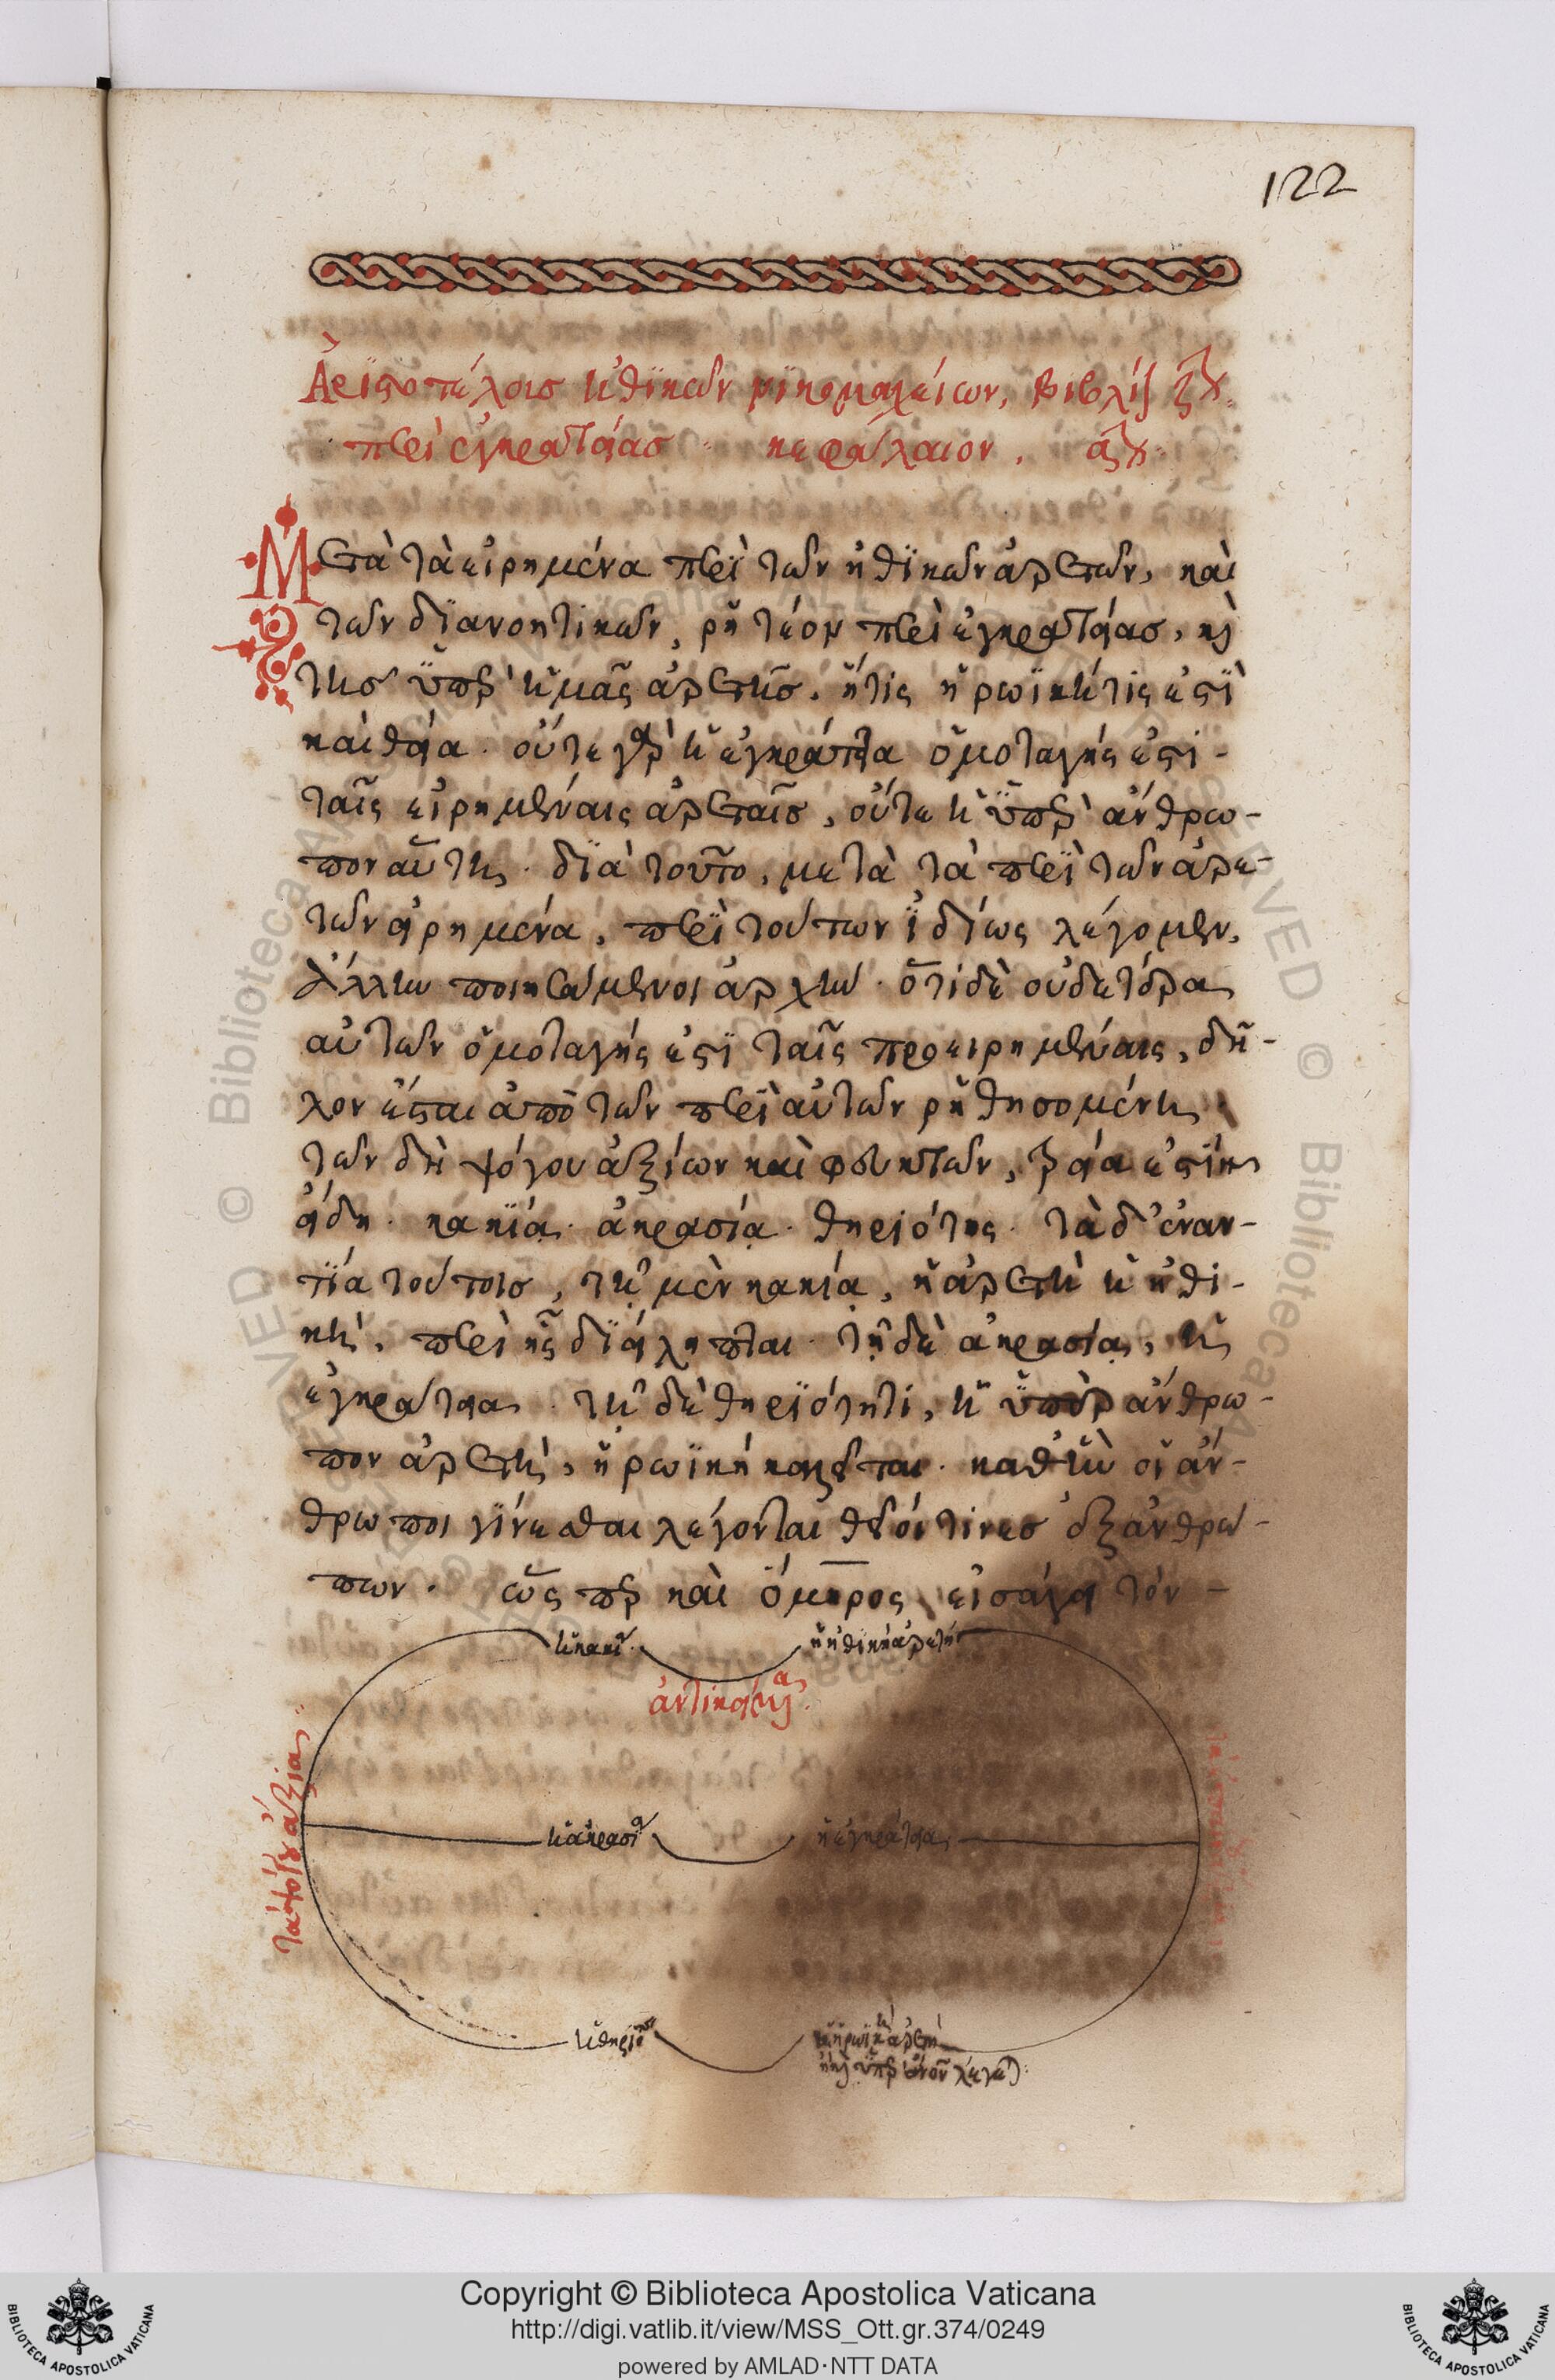 122
Ἀριστοτέλους ἠθικῶν νικομαχείων, βιβλίον ζον
περὶ ἐγκρατείας κεφάλαιον. αον
Μετὰ τὰ εἰρημένα περὶ τῶν ἠθικῶν ἀρετῶν, καὶ
τῶν διανοητικῶν, ῥητέον περὶ ἐγκρατείας, καὶ
τῆς ὑπὲρ ἡμᾶς ἀρετῆς. ἥτις ἡρωϊκή τίς ἐστὶ
καὶ θεία. οὔτε γὰρ ἡ ἐγκράτεια ὁμοταγής ἐστι
ταῖς εἰρημέναις ἀρεταῖς, οὔτε ἡ ὑπὲρ ἄνθρω-
πον αὕτη. διὰ τοῦτο, μετὰ τὰ περὶ τῶν ἀρε-
τῶν εἰρημένα, περὶ τούτων ἰδίως λέγομεν,
ἄλλην ποιησάμενοι ἀρχήν. ὅτι δὲ οὐδετέρα
αὐτῶν ὁμοταγής ἐστι ταῖς προειρημέναις, δῆ-
λον ἔσται ἀπὸ τῶν περὶ αὐτῶν ῥηθησομένων
τῶν δὴ ψόγου ἀξίων καὶ φευκτῶν, τρία ἐστὶν
εἴδη. κακία. ἀκρασία. θηριότης. τὰ δ' ἐναν-
τία τούτοις, τῇ μὲν κακίᾳ, ἡ ἀρετὴ ἡ ἠθι-
κή, περὶ ἧς διείληπται. τῇ δὲ ἀκρασίᾳ, ἡ
ἐγκράτεια. τῇ δὲ θηριότητι, ἡ ὑπὲρ ἄνθρω-
πον ἀρετή, ἡρωϊκὴ καλεῖται. καθ' ἣν οἱ ἄν-
θρωποι γίνεσθαι λέγονται θεοί τινες ἐξ ἀνθρώ-
πων. ὥσπερ καὶ ὅμηρος εἰσάγει τὸν
ἡ κακία ἡ ἠθικὴ ἀρετή
ἀντίκεινται
τὰ ψόγου ἄξια
ἡ ἀκρασία ἡ ἐγκράτεια
ἡ θηριότης ἡ ἡρωϊκὴ ἀρετή
ἡ καὶ ὑπὲρ ἄνθρωπον λέγεται
Copyright © Biblioteca Apostolica Vaticana
http://digi.vatlib.it/view/MSS_Ott.gr.374/0249
powered by AMLAD·NTT DATA
BIBLIOTECA APOSTOLICA VATICANA
BIBLIOTECA APOSTOLICA VATICANA